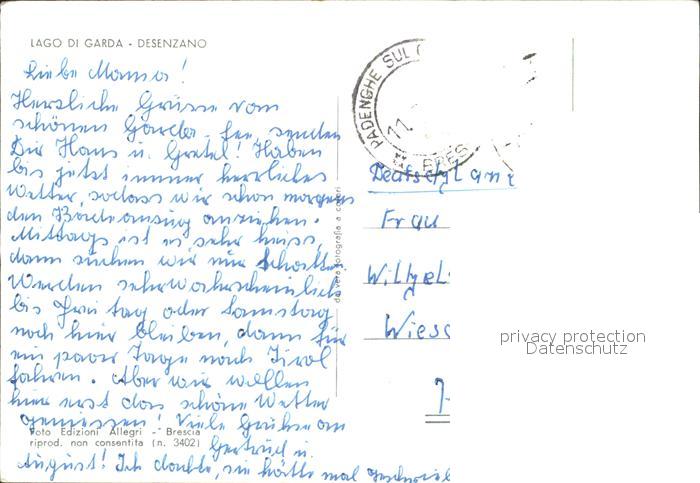 LAGO DI GARDA - DESENZANO
Liebe Mama!
Herzliche Grüsse vom
schönen Garda-See, senden
Dir Hans u. Gretel! Haben
bis jetzt immer herrliches
Wetter, sodass wir schon morgens
den Badeanzug anziehen.
Mittags ist es sehr heiss,
dann suchen wir nur Schatten.
Werden sehr wahrscheinlich
bis Freitag oder Samstag
noch hier bleiben, dann für
ein paar Tage nach Tirol
fahren. Aber wir wollen
hier erst das schöne Wetter
geniessen! Viele Grüsse an
Gertrud u.
August! Ich dachte, sie hätte mal geschrieb
Foto Edizioni Allegri - Brescia
riprod. non consentita (n. 3402)
da vera fotografia a colori
PADENGHE SUL
BRES
11
Deutschland
Frau
Wilhel
Wiess
privacy protection
Datenschutz